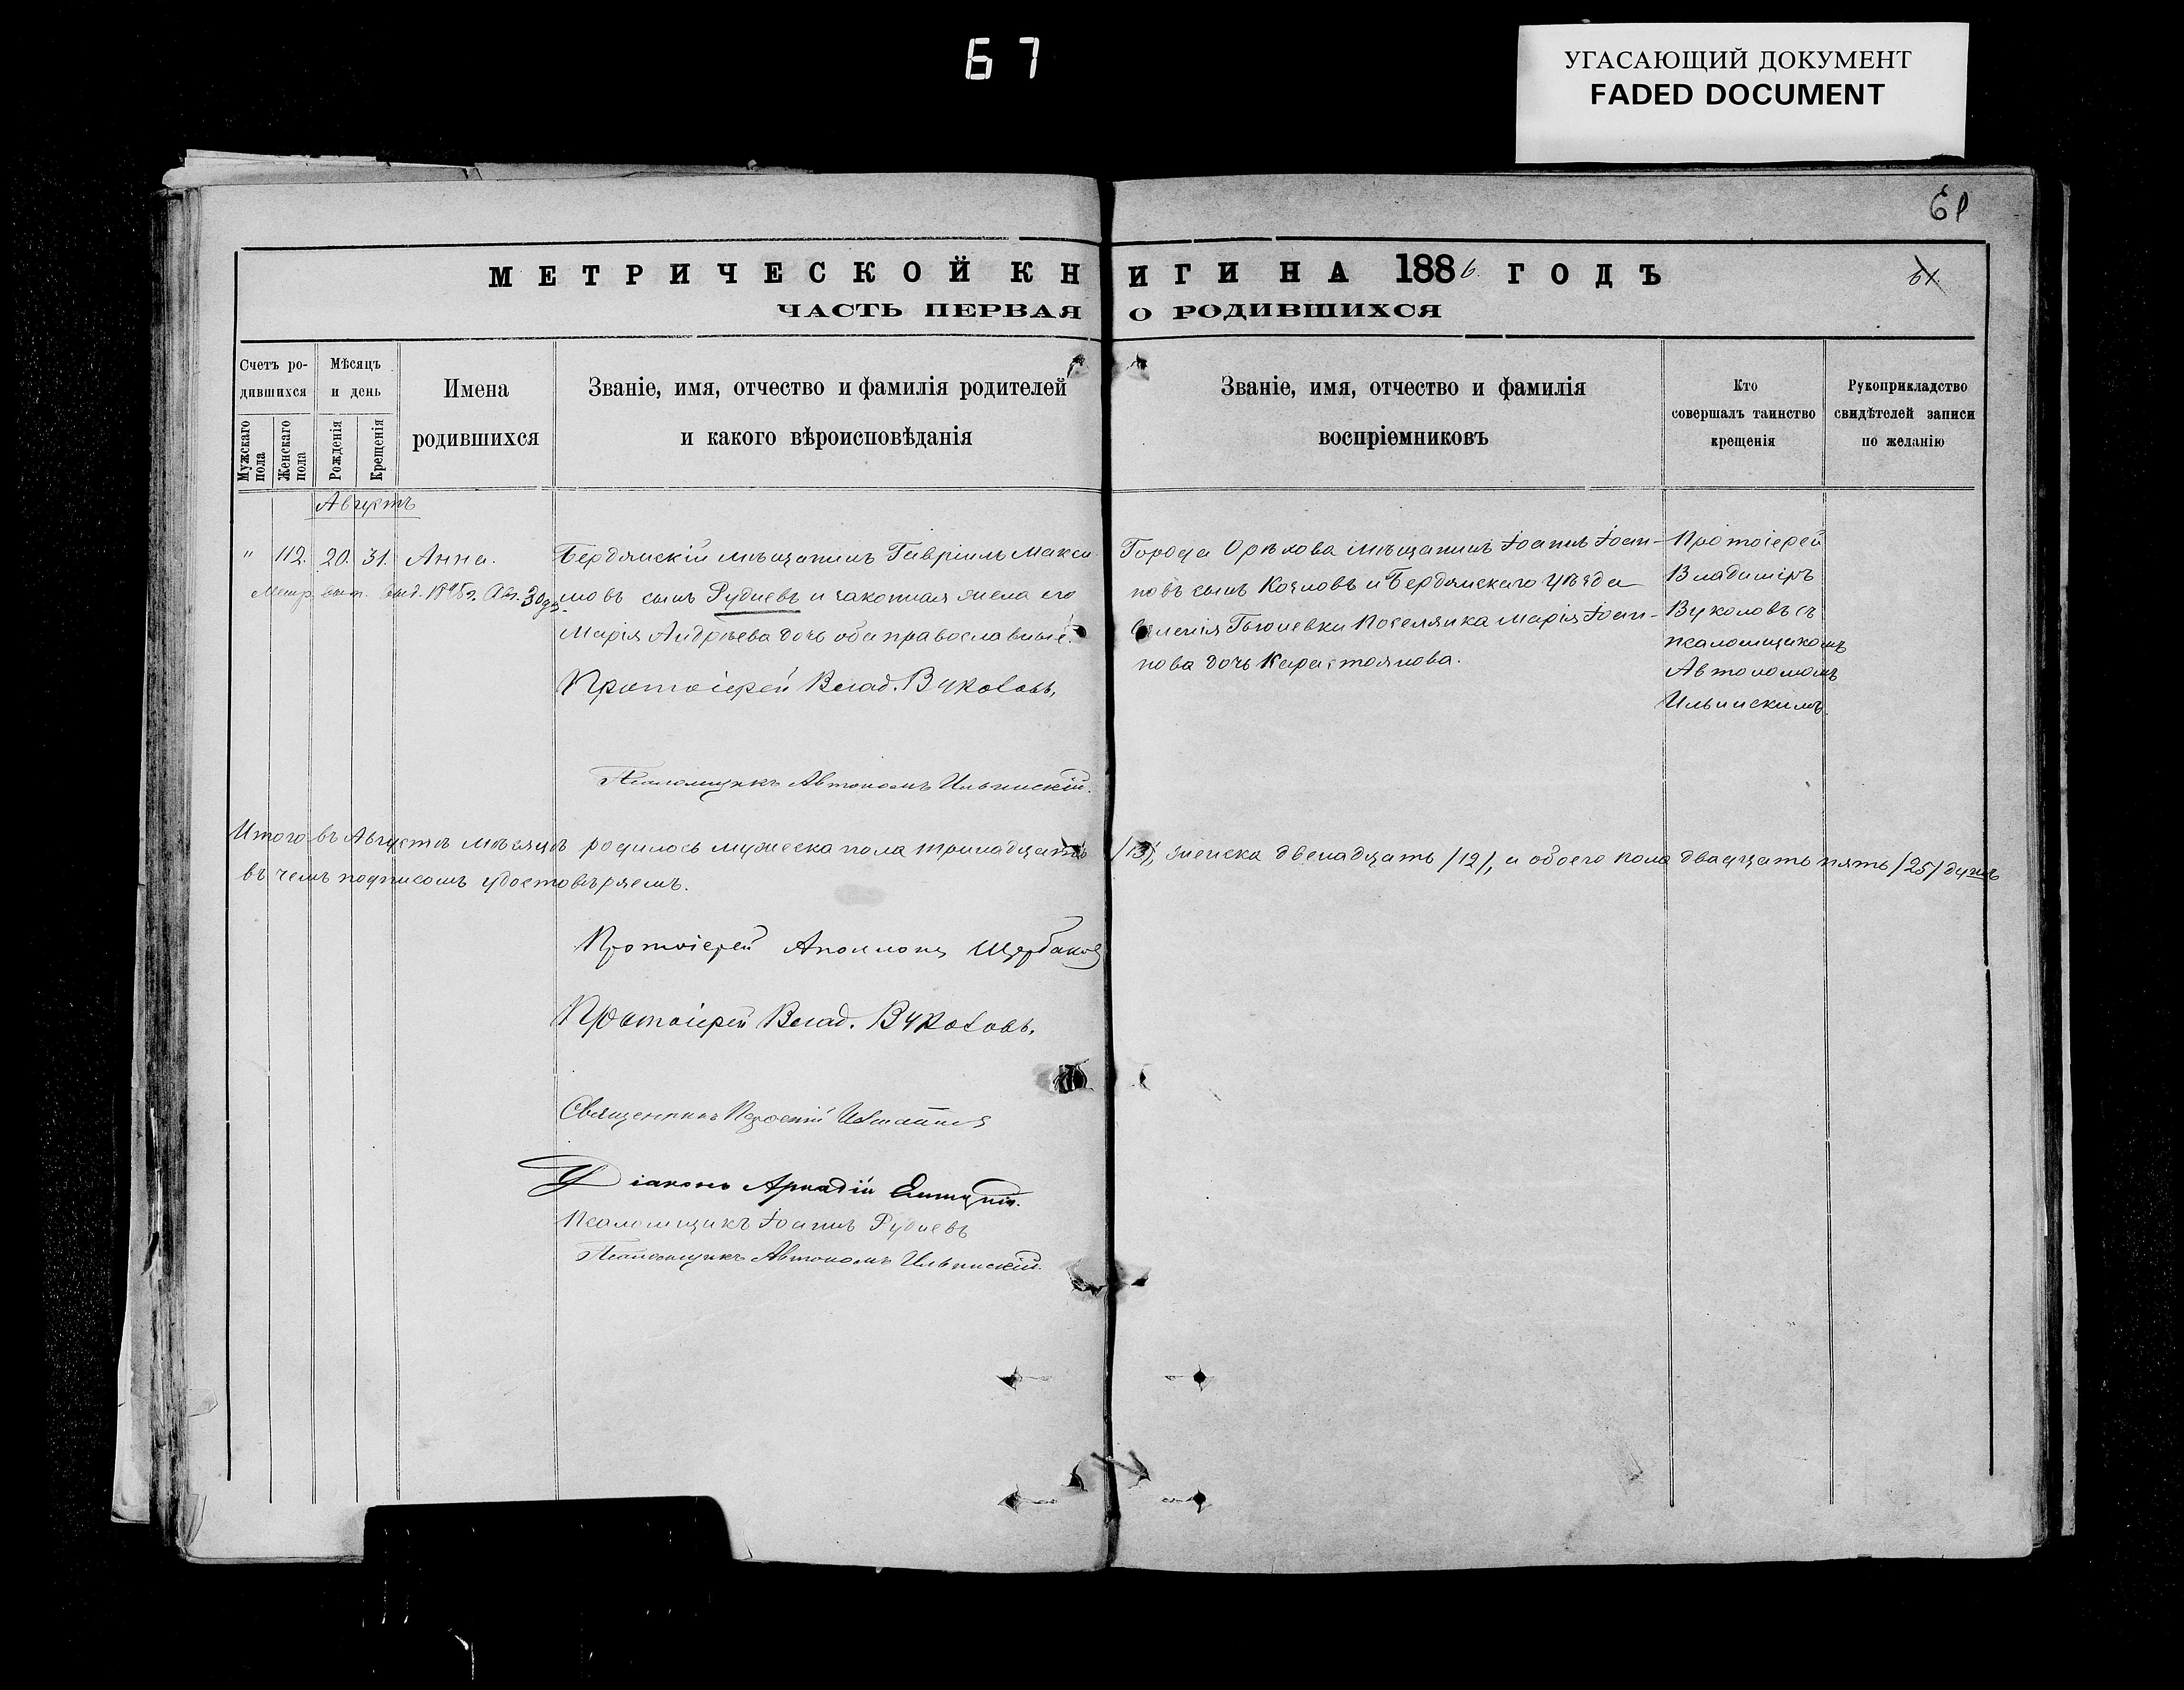 67
УГАСАЮЩИЙ ДОКУМЕНТ
FADED DOCUMENT
61
МЕТРИЧЕСКОЙ КНИГИ НА 1886 ГОДЪ
61
ЧАСТЬ ПЕРВАЯ О РОДИВШИХСЯ
Счетъ ро-
дившихся
Мужскаго пола
Женскаго пола
Мѣсяцъ
и день
Рожденія
Крещенія
Имена
родившихся
Званіе, имя, отчество и фамилія родителей
и какого вѣроисповѣданія
Званіе, имя, отчество и фамилія
воспріемниковъ
Кто
совершалъ таинство
крещенія
Рукоприкладство
свидѣтелей записи
по желанію
Августъ
" 112. 20. 31. Анна.
Метр. выд. Авг. 30
Бердянскій мѣщанинъ Гавріилъ Макси-
мовъ сынъ Рудневъ и законная жена его
Марія Андрѣева дочь оба православные.
Протоіерей Влад. Вуколовъ.
Псаломщикъ Автономъ Ильинскій.
Города Орѣхова мѣщанинъ Іоаннъ Іоан-
новъ сынъ Козловъ и Бердянскаго уѣзда
селенія Гюневки поселянка Марія Іоан-
нова дочь Карастоянова.
Протоіерей
Владиміръ
Вуколовъ съ
псаломщикомъ
Автономомъ
Ильинскимъ.
Итого въ Августѣ мѣсяцѣ родилось мужеска пола тринадцать /13/, женска двенадцать /12/, и обоего пола двадцать пять /25/ душъ
въ чемъ подписомъ удостовѣряемъ.
Протоіерей Аполлонъ Щербаковъ
Протоіерей Влад. Вуколовъ.
Священникъ
Діаконъ Аркадій
Псаломщикъ Іоаннъ Рудневъ
Псаломщикъ Автономъ Ильинскій.